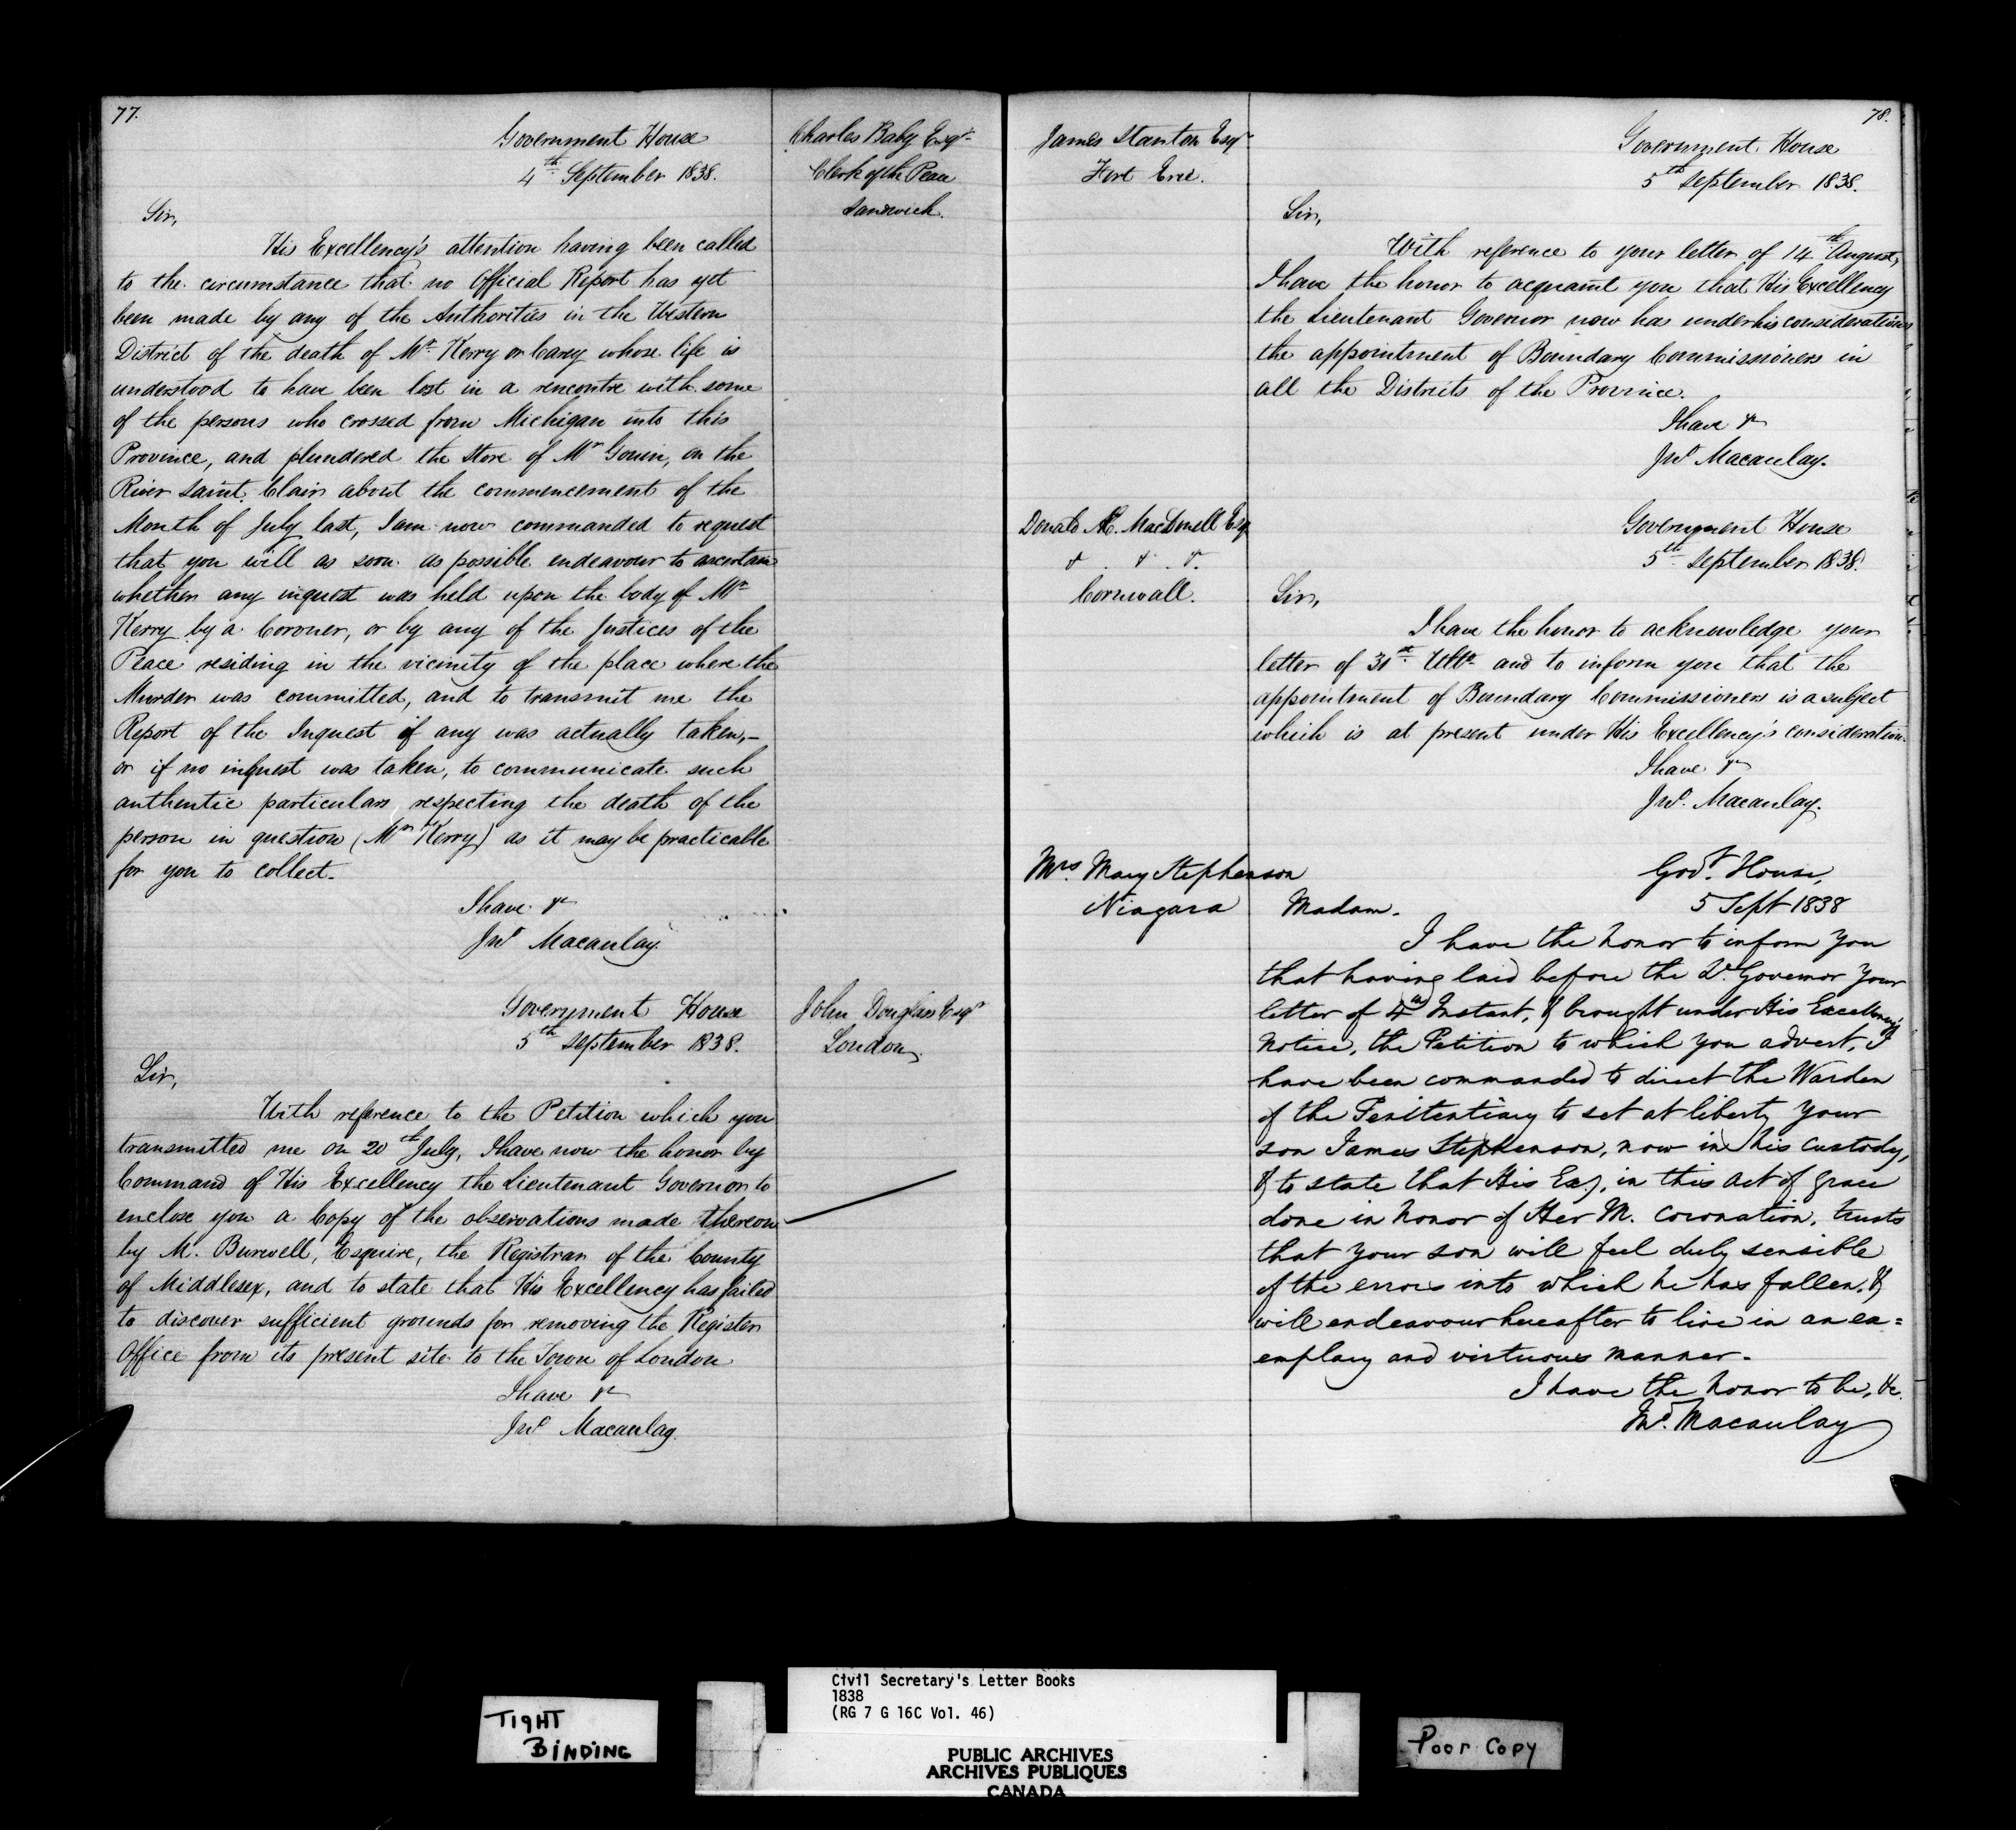 77.
Government House
4th September 1838.
Charles Baby Esqr
Clerk of the Peace
Sandwich.
Sir,
His Excellency's attention having been called
to the circumstance that no Official Report has yet
been made by any of the Authorities in the Western
District of the death of Mr Kerry or Carey whose life is
understood to have been lost in a rencontre with some
of the persons who crossed from Michigan into this
Province, and plundered the Store of Mr Gouin, on the
River Saint Clair about the commencement of the
Month of July last, I am now commanded to request
that you will as soon as possible endeavour to ascertain
whether any inquest was held upon the body of Mr
Kerry by a Coroner, or by any of the Justices of the
Peace residing in the vicinity of the place where the
Murder was committed, and to transmit me the
Report of the Inquest if any was actually taken,-
or if no inquest was taken, to communicate such
authentic particulars respecting the death of the
person in question (Mr Kerry) as it may be practicable
for you to collect.
I have &c
Jno Macaulay.
Government House
5th September 1838.
John Douglass Esqr
London.
Sir,
With reference to the Petition which you
transmitted me on 20th July, I have now the honor by
Command of His Excellency the Lieutenant Governor to
enclose you a Copy of the observations made thereon
by M. Burwell, Esquire, the Registrar of the County
of Middlesex, and to state that His Excellency has failed
to discover sufficient grounds for removing the Register
Office from its present site to the Town of London
I have &c
Jno Macaulay.
78.
James Stanton Esqr
Fort Erie.
Government House
5th September 1838.
Sir,
With reference to your letter of 14th August,
I have the honor to acquaint you that His Excellency
the Lieutenant Governor now has under his consideration
the appointment of Boundary Commissioners in
all the Districts of the Province.
I have &c
Jno Macaulay.
Donald Æ. MacDonell Esqr
&. &. &.
Cornwall.
Government House
5th September 1838.
Sir,
I have the honor to acknowledge your
letter of 31st Ulto and to inform you that the
appointment of Boundary Commissioners is a subject
which is at present under His Excellency's consideration.
I have &c
Jno. Macaulay.
Mrs Mary Stephenson
Niagara
Govt. House,
5 Sept 1838
Madam.
I have the honor to inform you
that having laid before the Lt Governor your
letter of 4th Instant, & brought under His Excellency's
notice, the Petition to which you advert, I
have been commanded to direct the Warden
of the Penitentiary to set at liberty your
son James Stephenson, now in his custody,
& to state that His Exy, in this act of grace
done in honor of Her M. Coronation, trusts
that your son will feel duly sensible
of the errors into which he has fallen, &
will endeavour hereafter to live in an ex=
emplary and virtuous manner.
I have the honor to be, &c.
Jno. Macaulay
TIGHT
BINDING
Civil Secretary's Letter Books
1838
(RG 7 G 16C Vol. 46)
PUBLIC ARCHIVES
ARCHIVES PUBLIQUES
CANADA
Poor Copy